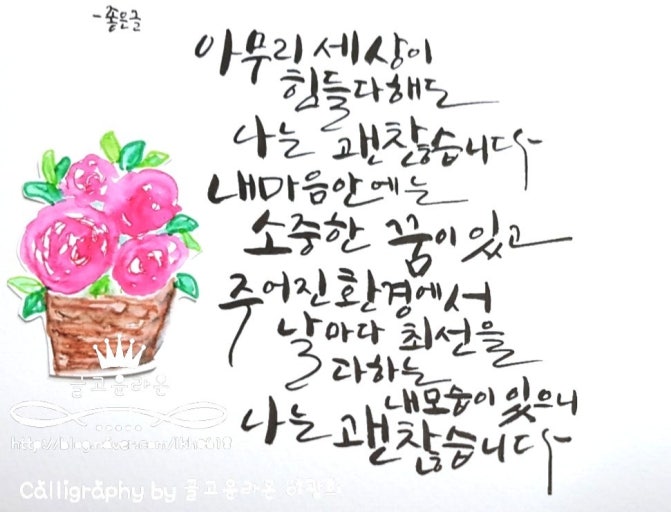 -좋은글
아무리 세상이
힘들다해도
나는 괜찮습니다
내마음안에는
소중한 꿈이 있고
주어진 환경에서
날마다 최선을
다하는
내모습이 있으니
나는 괜찮습니다
Calligraphy by